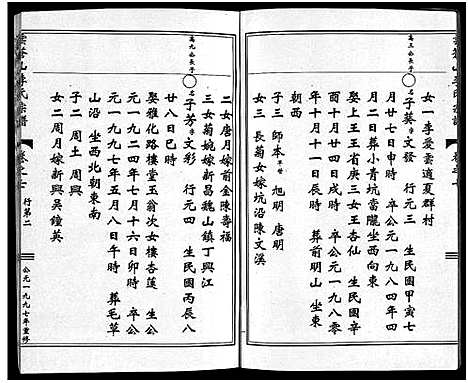 高三公長子
女一 李受雲適夏群村
名子葵 字文發 行元 生民國甲寅七
月二日 卒公元一九八四年四
月二日葬小青坑當隴坐西向東
娶上王王省庚三女王杏仙 生民國辛
酉十月十一日時 卒公元一九八〇
年十月十一日 葬前明山 坐東
朝西
子三 師本早世 旭明 唐明
女三 長菊女嫁坑沿陳文溪
高九公長子
二女唐月嫁前金陳壽福
三女菊婉嫁新昌魏山鎮丁興江
名子芳 字文彩 行元四 生民國丙辰八
廿八日巳時
娶雅化路樓堂玉翁次女杏蓮 生公
元一九二四年十六日卯時 卒公
元一九九七年五月八日午時 葬毛草
山沿 坐西北朝東南
子
女二 周月嫁新興吳鐘英
行第二
公元一九九七年重修